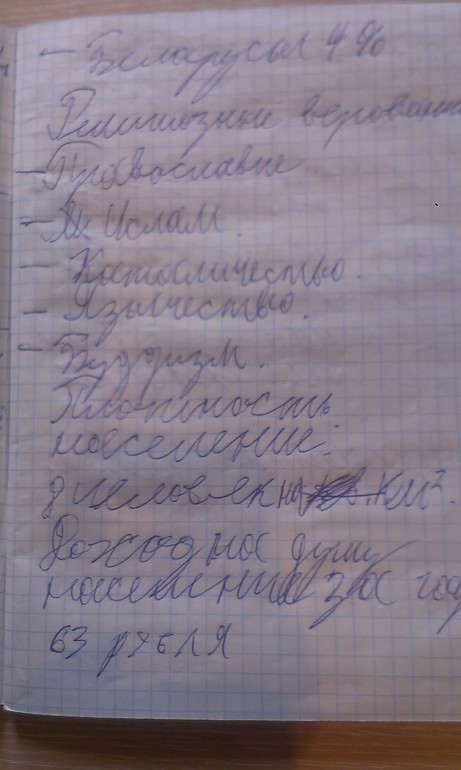 - Беларусы 4%
Религиозные верован
- Православие
- Ислам.
- Католичество.
- Язычество.
- Буддизм.
Плотность
население:
8 человек на км².
Доход на душу
населения за год
63 рубля